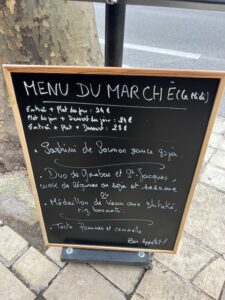 MENU DU MARCHÉ (Le Midi)
Entrée + Plat du jour : 24 €
Plat du jour + Dessert du jour : 24 €
Entrée + Plat + Dessert : 28 €
. Sashimi de Saumon sauce soja.
. Duo de Gambas et St Jacques,
wok de légumes au soja et sésame
ou
. Médaillon de Veau aux shitaké,
riz basmati.
. Tarte Pommes et cannelle
Bon Appétit !